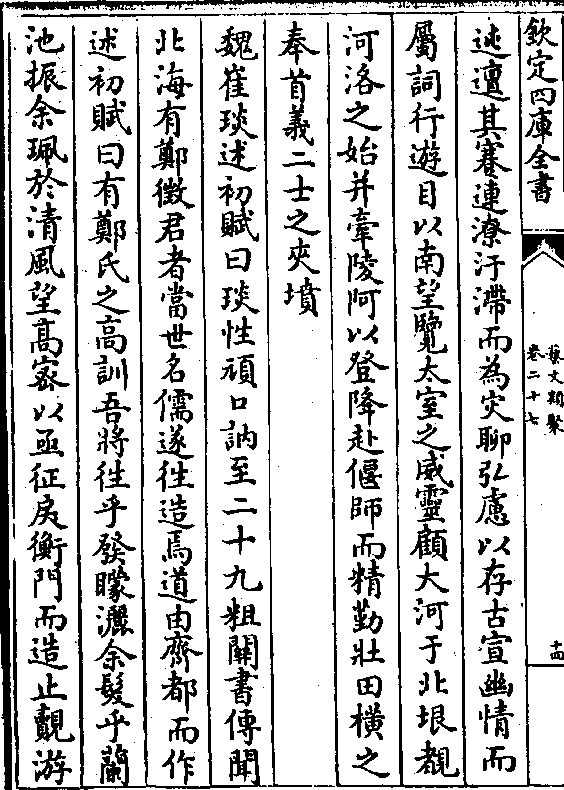 欽定四庫全書
藝文類聚
卷二十七
十四
迍邅其蹇連潦汙滯而為災聊弘慮以存古宣幽情而
屬詞行遊目以南望覽太室之威靈顧大河于北垠覩
河洛之始并牽陵阿以登降赴偃師而精勤壯田橫之
奉首義二士之夾墳
魏崔琰述初賦曰琰性頑口訥至二十九粗關書傳聞
北海有鄭徵君者當世名儒遂往造焉道由齊都而作
述初賦曰有鄭氏之高訓吾將往乎發矇灑余髮乎蘭
池振余珮於清風望髙宻以亟征戾衡門而造止覿游